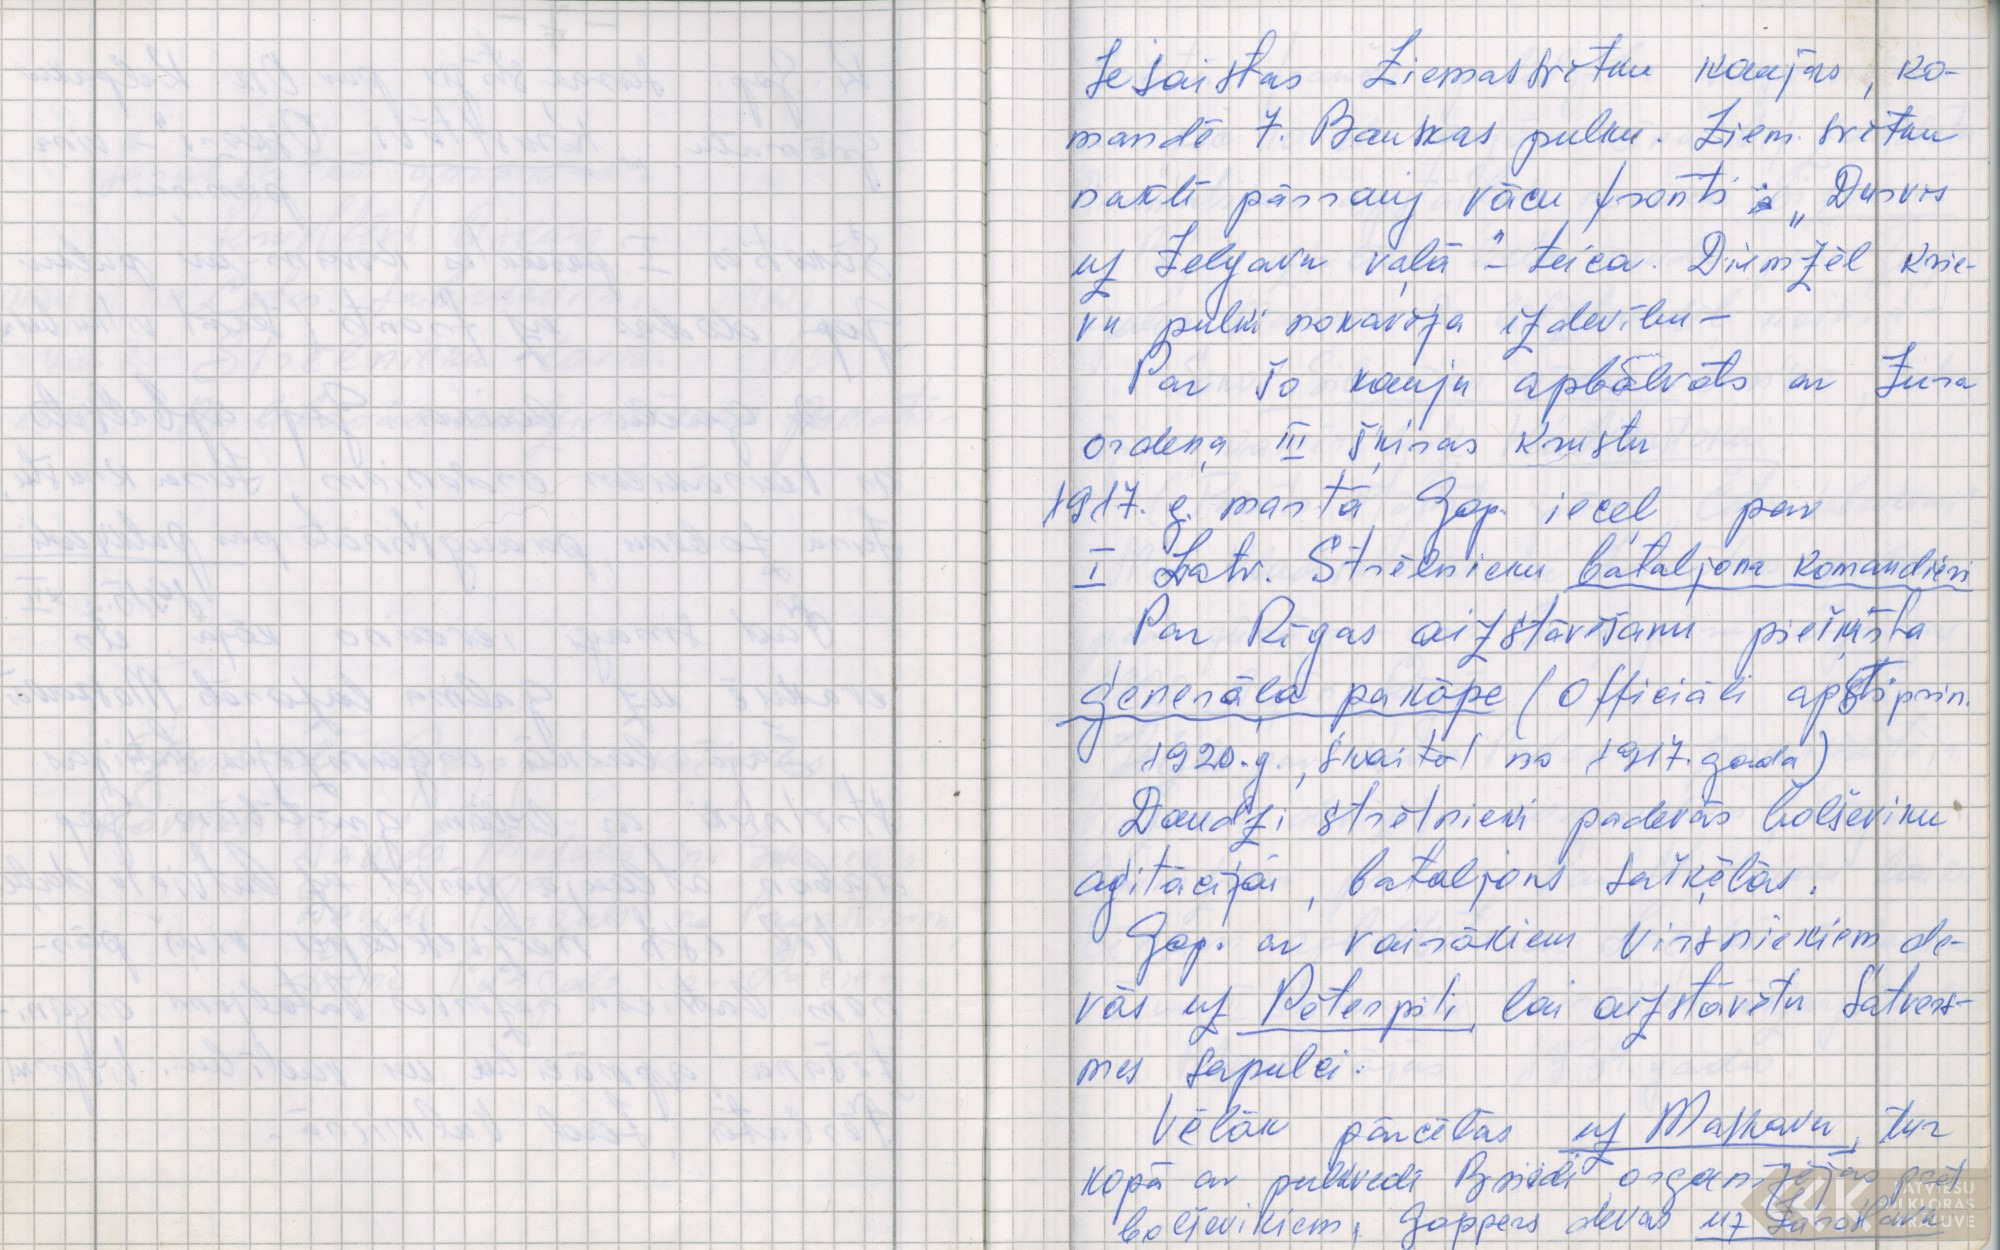 Iesaistas Ziemassvētku kaujās, ko-
mandē 7. Bauskas pulku. Ziem. svētku
naktī pārrauj vācu fronti: „Durvis
uz Jelgavu vaļā" – teica. Diemžēl krie-
vu pulki nokavēja izdevību –
Par šo kauju apbalvots ar Jura
ordeņa III šķiras krustu
1917. g. martā Gop. ieceļ par
I Latv. Strēlnieku bataljona komandieri
Par Rīgas aizstāvēšanu piešķirta
ģenerāļa pakāpe (Officiāli apstiprin.
1920. g., skaitot no 1917. gada)
Daudzi strēlnieki padevās boļševiku
aģitācijai, bataljons sašķēlās.
Gop. ar vairākiem virsniekiem de-
vās uz Pēterpili, lai aizstāvētu Satvers-
mes sapulci.
Vēlāk pārcēlās uz Maskavu, tur
kopā ar pulkvedi Briedi organizējas pret
boļševikiem, Goppers devās uz Jaroslavļu
LATVIEŠU
FOLKLORAS
KRĀTUVE